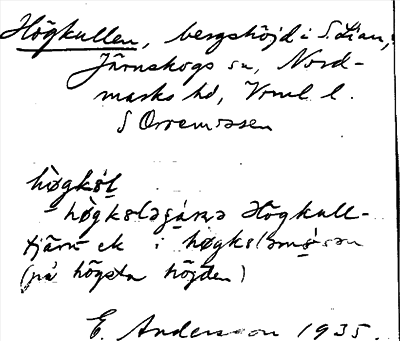 Högkullen, bergshöjd i S. Lian,
Järnskogs sn, Nord-
marks hd, Vrml l.
S Orremossen
hø̀gkөl
hø̀gkөləgá Högkull-
tjärn ek i høgkөləmò
(på högsta höjden)
E. Andersson 1935.